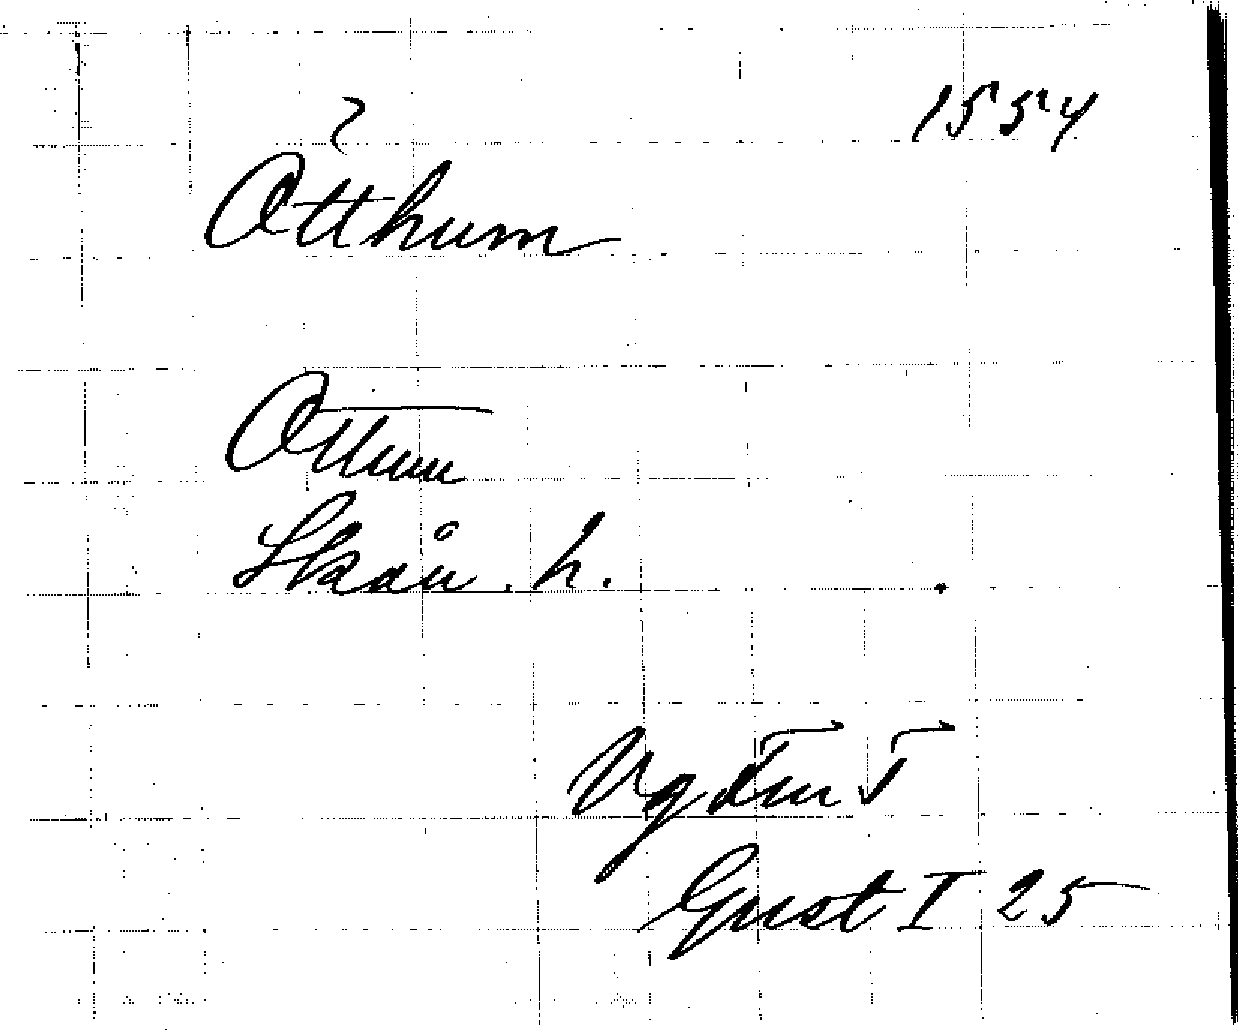 1554
Otthum
Ottum
Skån. h.
Vg
Gust I 25